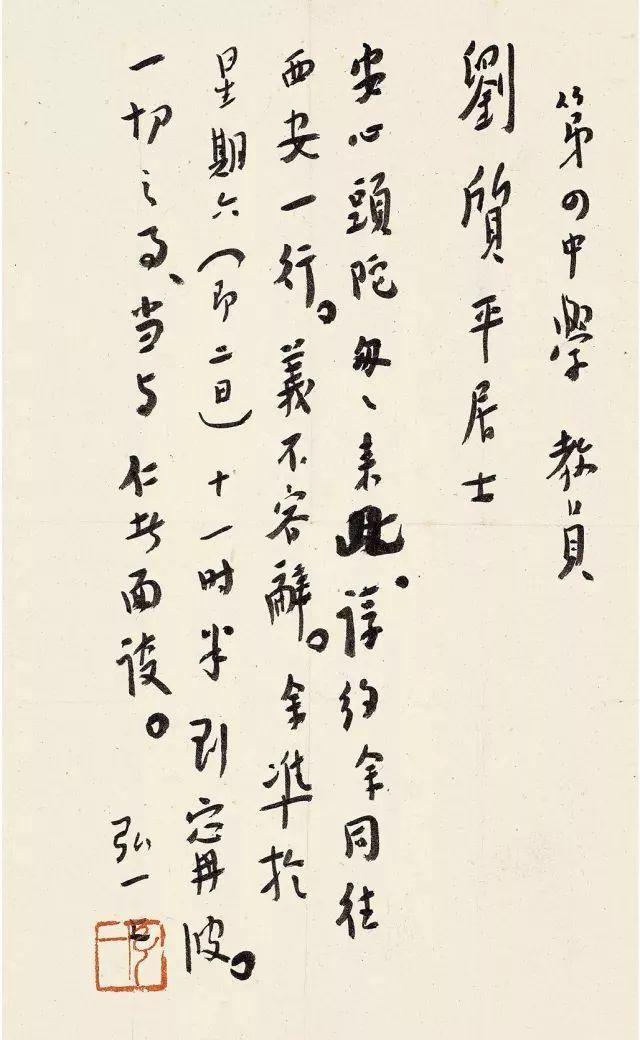 第四中學 教員
劉質平居士
安心頭陀匆匆来此。諄約余同往
西安一行。義不容辭。余準於
星期六（即二日）十一时半到宁波。
一切之事、当与仁者面談。
弘一上